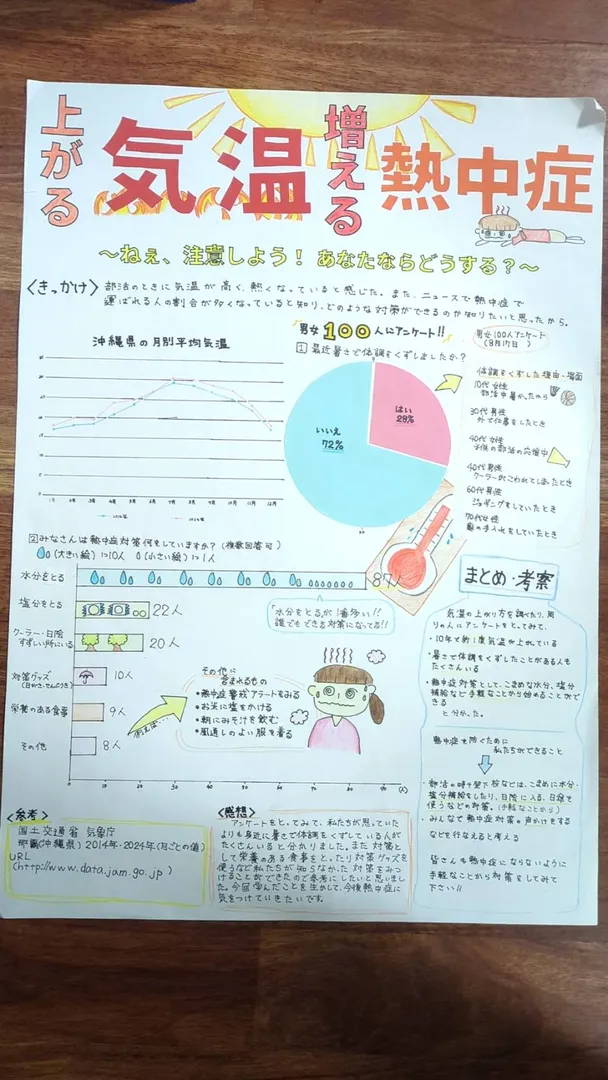 上がる
気温
増える
熱中症
〜ねぇ、注意しよう！ あなたならどうする？〜
〈きっかけ〉
部活のときに気温が高く、熱くなっていると感じた。また、ニュースで熱中症で
運ばれる人の割合が多くなっていると知り、どのような対策ができるのか知りたいと思ったから。
沖縄県の月別平均気温
男女100人にアンケート!!
1 最近暑さで体調をくずしましたか？
はい
28%
いいえ
72%
男女100人アンケート
体調をくずした理由・場面
10代 女性
部活中暑かったから
30代 男性
外で仕事をしたとき
40代 女性
子供の部活の応援中
40代 男性
クーラーがこわれてしまったとき
60代 男性
ジョギングをしていたとき
70代 女性
畑の手入れをしていたとき
2 みなさんは熱中症対策何をしていますか？(複数回答可)
(大きい絵)1つ10人 (小さい絵)1つ1人
水分をとる
87人
塩分をとる
22人
クーラー・日陰
すずしい所にいる
20人
対策グッズ
10人
栄養のある食事
9人
その他
8人
0 10 20 30 40 50 60 70 80 90 (人)
「水分をとる」が1番多い!!
誰でもできる対策になってる!!
例えば…
その他に
含まれるもの
・熱中症警戒アラートをみる
・お米に塩をかける
・朝にみそ汁を飲む
・風通しのよい服を着る
まとめ・考察
気温の上がり方を調べたり、周
りの人にアンケートをとってみて、
・10年で約1度気温が上がっている
・暑さで体調をくずしたことがある人も
たくさんいる
・熱中症対策として、こまめな水分、塩分
補給など手軽なことから始めることができ
る
と分かった。
熱中症を防ぐために
私たちができること
・部活の時や登下校などは、こまめに水分・
塩分補給をしたり、日陰に入る、日傘を
使うなどの対策。(手軽なことから)
・みんなで熱中症対策の声かけをする
などを行なえると考える
皆さんも熱中症にならないように
手軽なことから対策をしてみて
下さい!!
〈参考〉
国土交通省 気象庁
那覇(沖縄県) 2014年・2024年(月ごとの値)
URL
(http://www.data.jam.go.jp)
〈感想〉
アンケートをとってみて、私たちが思っていた
よりも身近に暑さで体調をくずしている人が
たくさんいると分かりました。また対策と
して栄養のある食事をとったり対策グッズを
使うなど私たちが知らなかった対策をみつ
けることができたので参考にしたいと思いまし
た。今回学んだことを生かして、今後熱中症に
気をつけていきたいです。